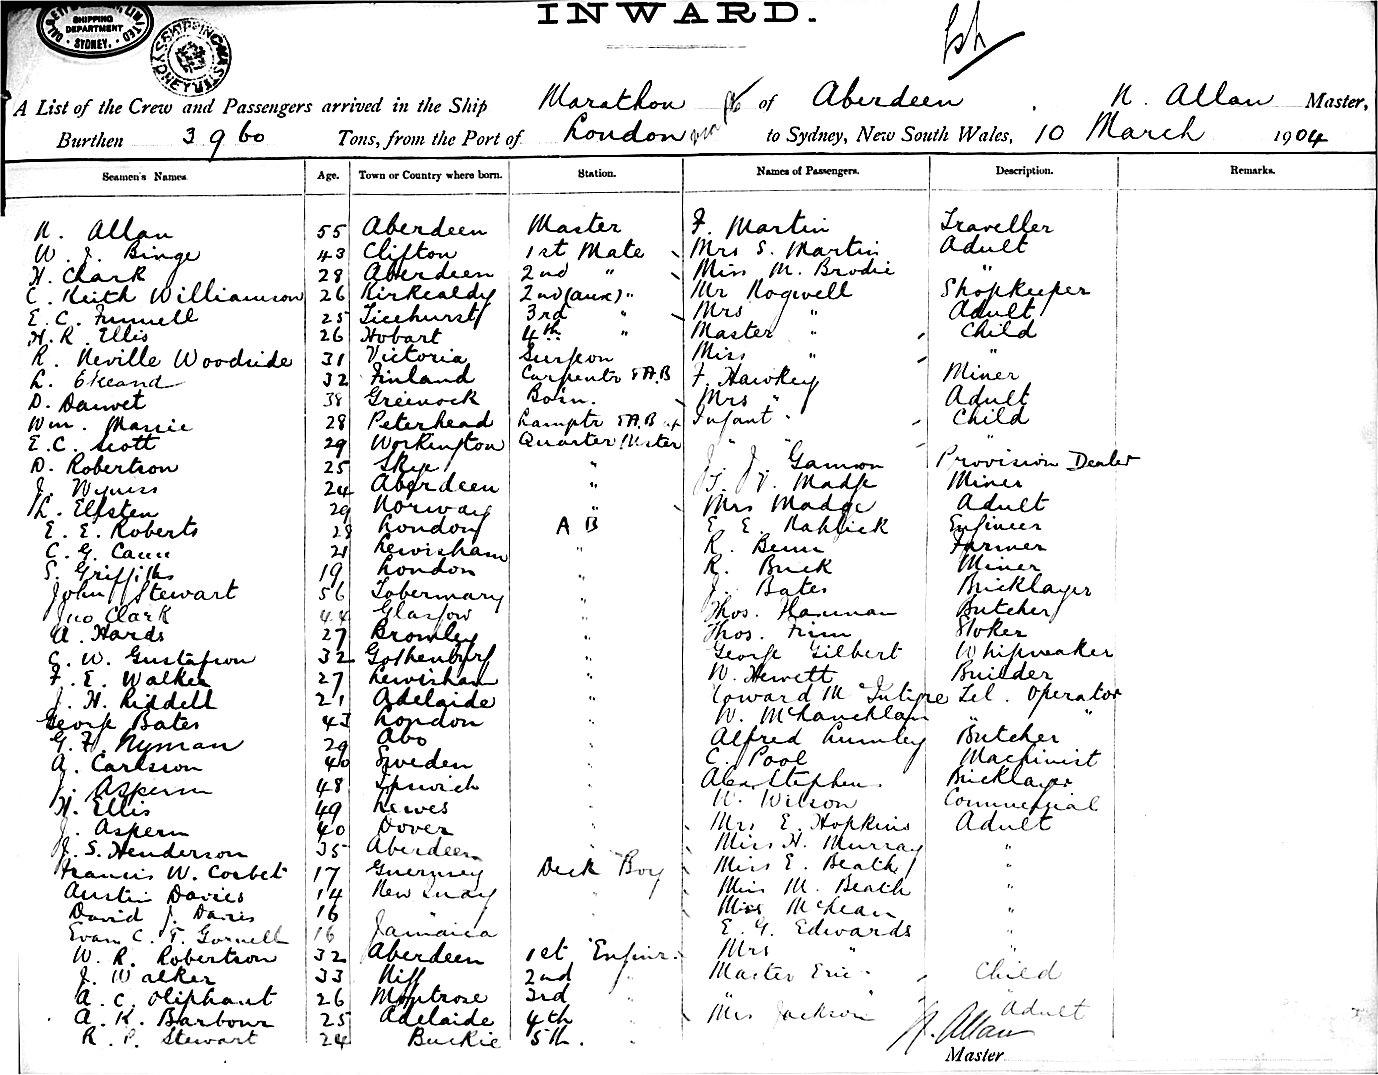 SHIPPING
DEPARTMENT
SYDNEY.
INWARD.
A List of the Crew and Passengers arrived in the Ship Marathon of Aberdeen, N. Allan Master,
Burthen 3960 Tons, from the Port of London to Sydney, New South Wales, 10 March 1904
Seamen's Names Age. Town or Country where born. Station. Names of Passengers. Description. Remarks.
N. Allan 55 Aberdeen Master F. Martin Traveller
W. J. Binge 43 Clifton 1st Mate Mrs S. Martin Adult
H. Clark 28 Aberdeen 2nd " Miss M. Brodie "
C. Keith Williamson 26 Kirkcaldy 2nd (aux) " Mr Rogwell Shopkeeper
E. C. Funnell 25 Ticehurst 3rd " Mrs " Adult
H. R. Ellis 26 Hobart 4th " Master " Child
R. Neville Woodside 31 Victoria Surgeon Miss " "
L. 32 Finland Carpentr & A.B F. Hawkey Miner
D. 38 Greenock Bosn. Mrs " Adult
Wm. Massie 28 Peterhead Lamptr & A.B Infant " Child
E. C. Scott 29 Workington Quarter Master " " "
D. Robertson 25 Skye " J. J. Gamon Provision Dealer
J. Wyness 24 Aberdeen " Madge Miner
L. Elfsten 29 Norway " Mrs Madge Adult
E. E. Roberts 28 London A B E. E. Engineer
C. G. Cann 21 Lewisham " R. Benn Farmer
S. Griffiths 19 London " R. Buck Miner
John Stewart 56 Tobermory " J. Bates Bricklayer
Jno Clark 44 Glasgow " Thos. Hannan Butcher
A. Hards 27 Bromley " Thos. Finn Stoker
C. W. Gustafson 32 Gothenburg " George Gilbert Whipmaker
F. E. Walker 27 Lewisham " W. Hewett Builder
J. H. Riddell 21 Adelaide " Edward McIntyre Tel. Operator
George Bates 43 London " W. McLauchlan " "
G. F. Nyman 29 Abo " Alfred Lumley Butcher
A. Carlsson 40 Sweden " C. Pool Machinist
J. Asperin 48 Ipswich " Alex Stephen Bricklayer
H. Ellis 49 Lewes " W. Wilson Commercial
J. Asperin 40 Dover " Mrs E. Hopkins Adult
J. S. Henderson 35 Aberdeen " Miss H. Murray "
Francis W. Corbet 17 Guernsey Deck Boy Miss E. Beath "
Austin Davies 14 New Quay " Miss M. Beath "
David J. Davies 16 " " Miss McLean "
Evan C. T. Gornell 16 Jamaica E. G. Edwards "
W. R. Robertson 32 Aberdeen 1st Enginr. Mrs " "
J. Walker 33 2nd " Master Eric " Child
A. C. Oliphant 26 Montrose 3rd " " " "
A. K. Barbour 25 Adelaide 4th " Mrs Jackson Adult
R. P. Stewart 24 Buckie 5th. "
N. Allan
Master